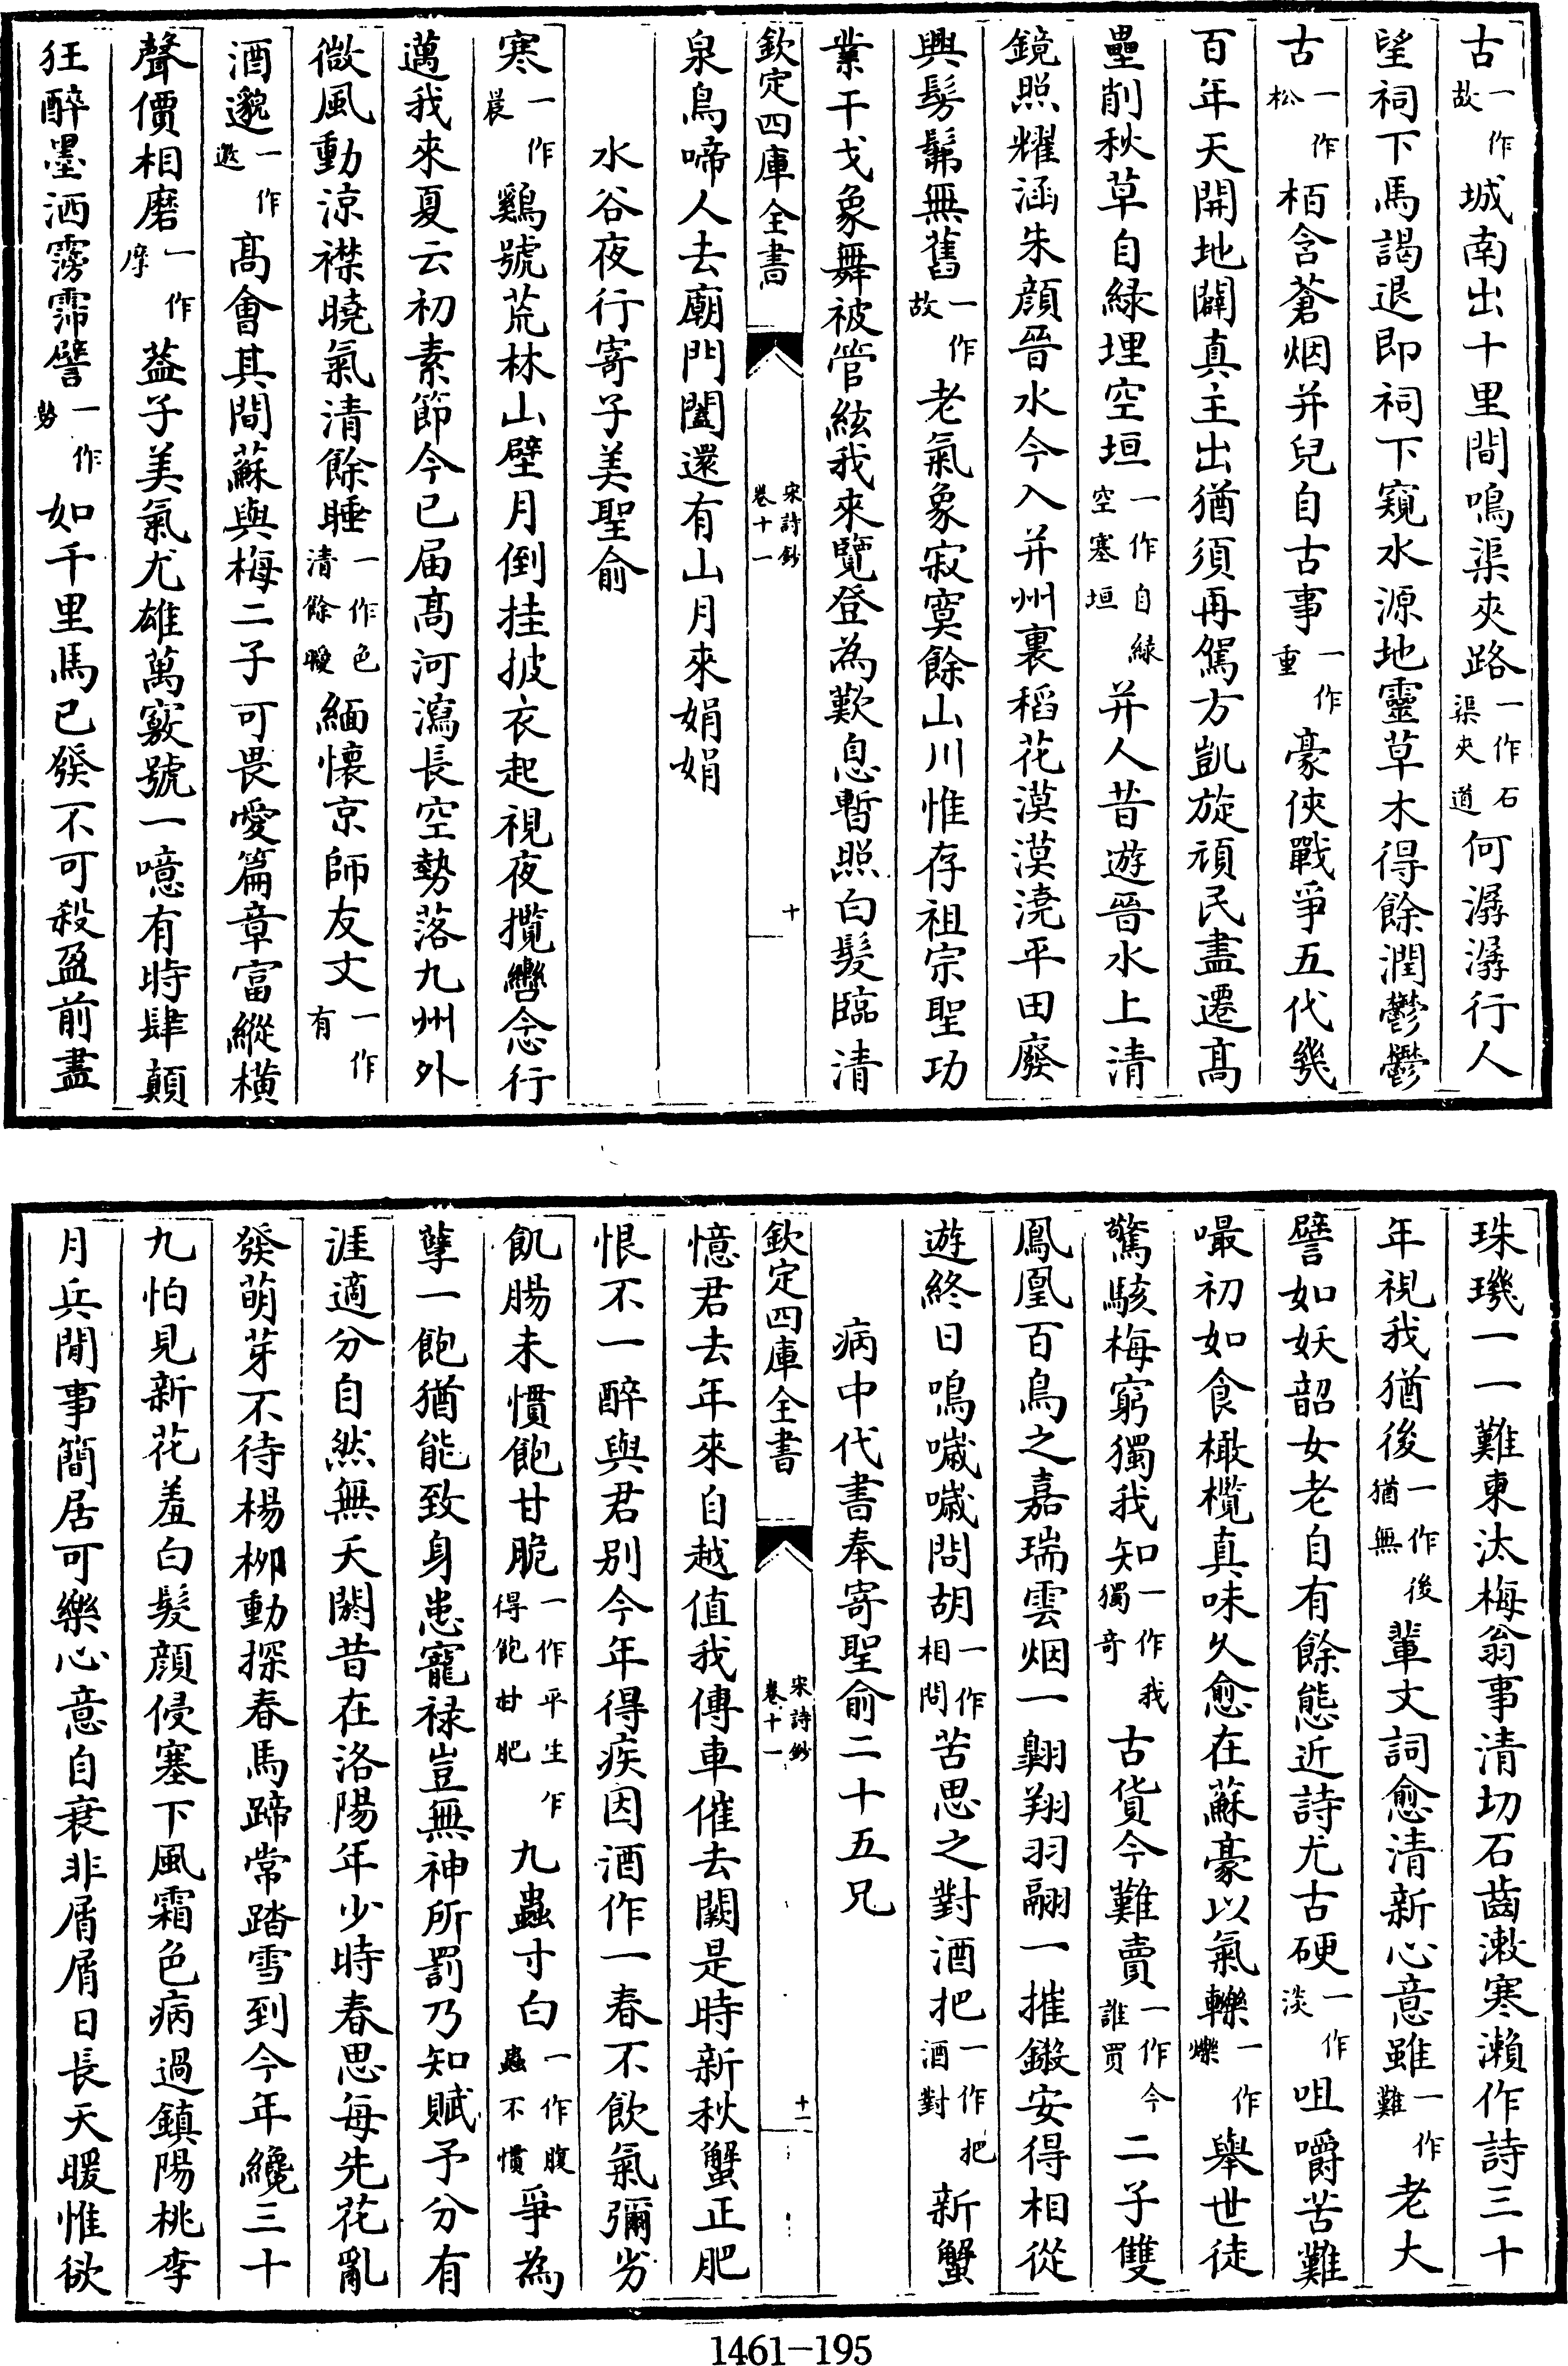 古一作故城南出十里間鳴渠夾路一作石渠夾道何潺潺行人
望祠下馬謁退即祠下窺水源地靈草木得餘潤鬱鬱
古一作松栢含蒼烟并兒自古事一作重豪俠戰爭五代幾
百年天開地闢真主出猶須再駕方凱旋頑民盡遷髙
壘削秋草自緑埋空垣一作自緑空塞垣并人昔遊晉水上清
鏡照耀涵朱顔晉水今入并州裏稻花漠漠澆平田廢
興髣髴無舊一作故老氣象寂寞餘山川惟存祖宗聖功
業干戈象舞被管絃我來覽登為歎息暫照白髮臨清
欽定四庫全書 宋詩鈔 卷十一 十
泉鳥啼人去廟門闔還有山月來娟娟
水谷夜行寄子美聖俞
寒一作晨鷄號荒林山壁月倒挂披衣起視夜攬轡念行
邁我來夏云初素節今已届髙河瀉長空勢落九州外
微風動涼襟曉氣清餘睡一作色清餘曖緬懷京師友文一作有
酒邈一作邀髙會其間蘇與梅二子可畏愛篇章富縱横
聲價相磨一作摩葢子美氣尤雄萬竅號一噫有時肆顛
狂醉墨洒霶霈譬一作勢如千里馬已發不可殺盈前盡
珠璣一一難柬汰梅翁事清切石齒漱寒瀨作詩三十
年視我猶後一作後猶無輩文詞愈清新心意雖一作難老大
譬如妖韶女老自有餘態近詩尤古硬一作淡咀嚼苦難
嘬初如食橄欖真味久愈在蘇豪以氣轢一作爍舉世徒
驚駭梅窮獨我知一作我獨奇古貨今難賣一作今誰買二子雙
鳳凰百鳥之嘉瑞雲烟一翺翔羽翮一摧鎩安得相從
遊終日鳴噦噦問胡一作相問苦思之對酒把一作把酒對新蟹
病中代書奉寄聖俞二十五兄
欽定四庫全書 宋詩鈔 卷十一 十一
憶君去年來自越值我傳車催去闕是時新秋蟹正肥
恨不一醉與君别今年得疾因酒作一春不飲氣彌劣
飢腸未慣飽甘脆一作平生作得飽甘肥九蟲寸白一作腹蟲不慣爭為
孽一飽猶能致身患寵禄豈無神所罰乃知賦予分有
涯適分自然無夭閼昔在洛陽年少時春思每先花亂
發萌芽不待楊柳動探春馬蹄常踏雪到今年纔三十
九怕見新花羞白髮顔侵塞下風霜色病過鎮陽桃李
月兵閒事簡居可樂心意自衰非屑屑日長天暖惟欲
1461-195